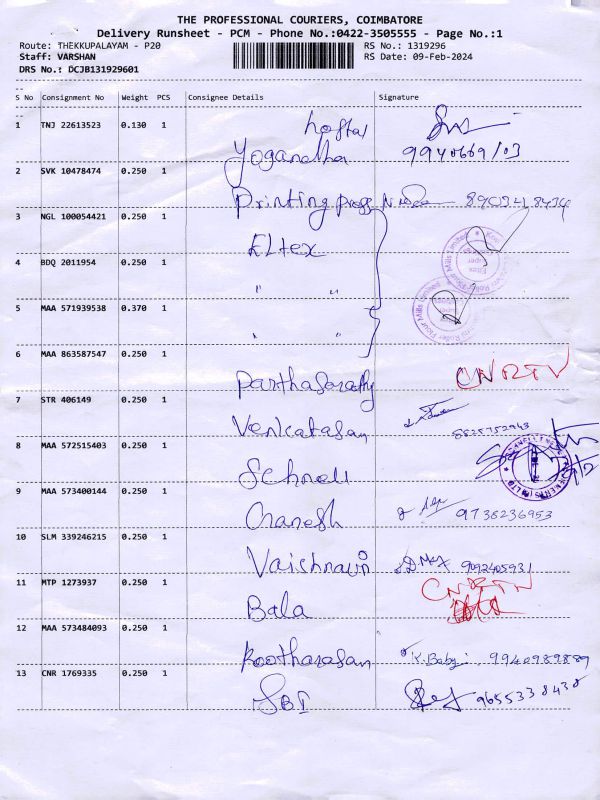 THE PROFESSIONAL COURIERS, COIMBATORE
Delivery Runsheet - PCM - Phone No.:0422-3505555 - Page No.:1
Route: THEKKUPALAYAM - P20 RS No.: 1319296
Staff: VARSHAN RS Date: 09-Feb-2024
DRS No.: DCJB131929601
S No Consignment No Weight PCS Consignee Details Signature
1 TNJ 22613523 0.130 1 hostal
Yogandha
2 SVK 10478474 0.250 1
Printing press
3 NGL 100054421 0.250 1
Eltex
4 BDQ 2011954 0.250 1
" "
5 MAA 571939538 0.370 1
" "
6 MAA 863587547 0.250 1
Parthasarathy CNRTN
7 STR 406149 0.250 1
Venkatasan 8825752943
8 MAA 572515403 0.250 1
Schneli
9 MAA 573400144 0.250 1
Ganesh 9738236953
10 SLM 339246215 0.250 1
Vaishnavi 9092405931
11 MTP 1273937 0.250 1 CNRTN
Bala
12 MAA 573484093 0.250 1
Kootharasan K. Baby, 9940989889
13 CNR 1769335 0.250 1
SBI 9655338438